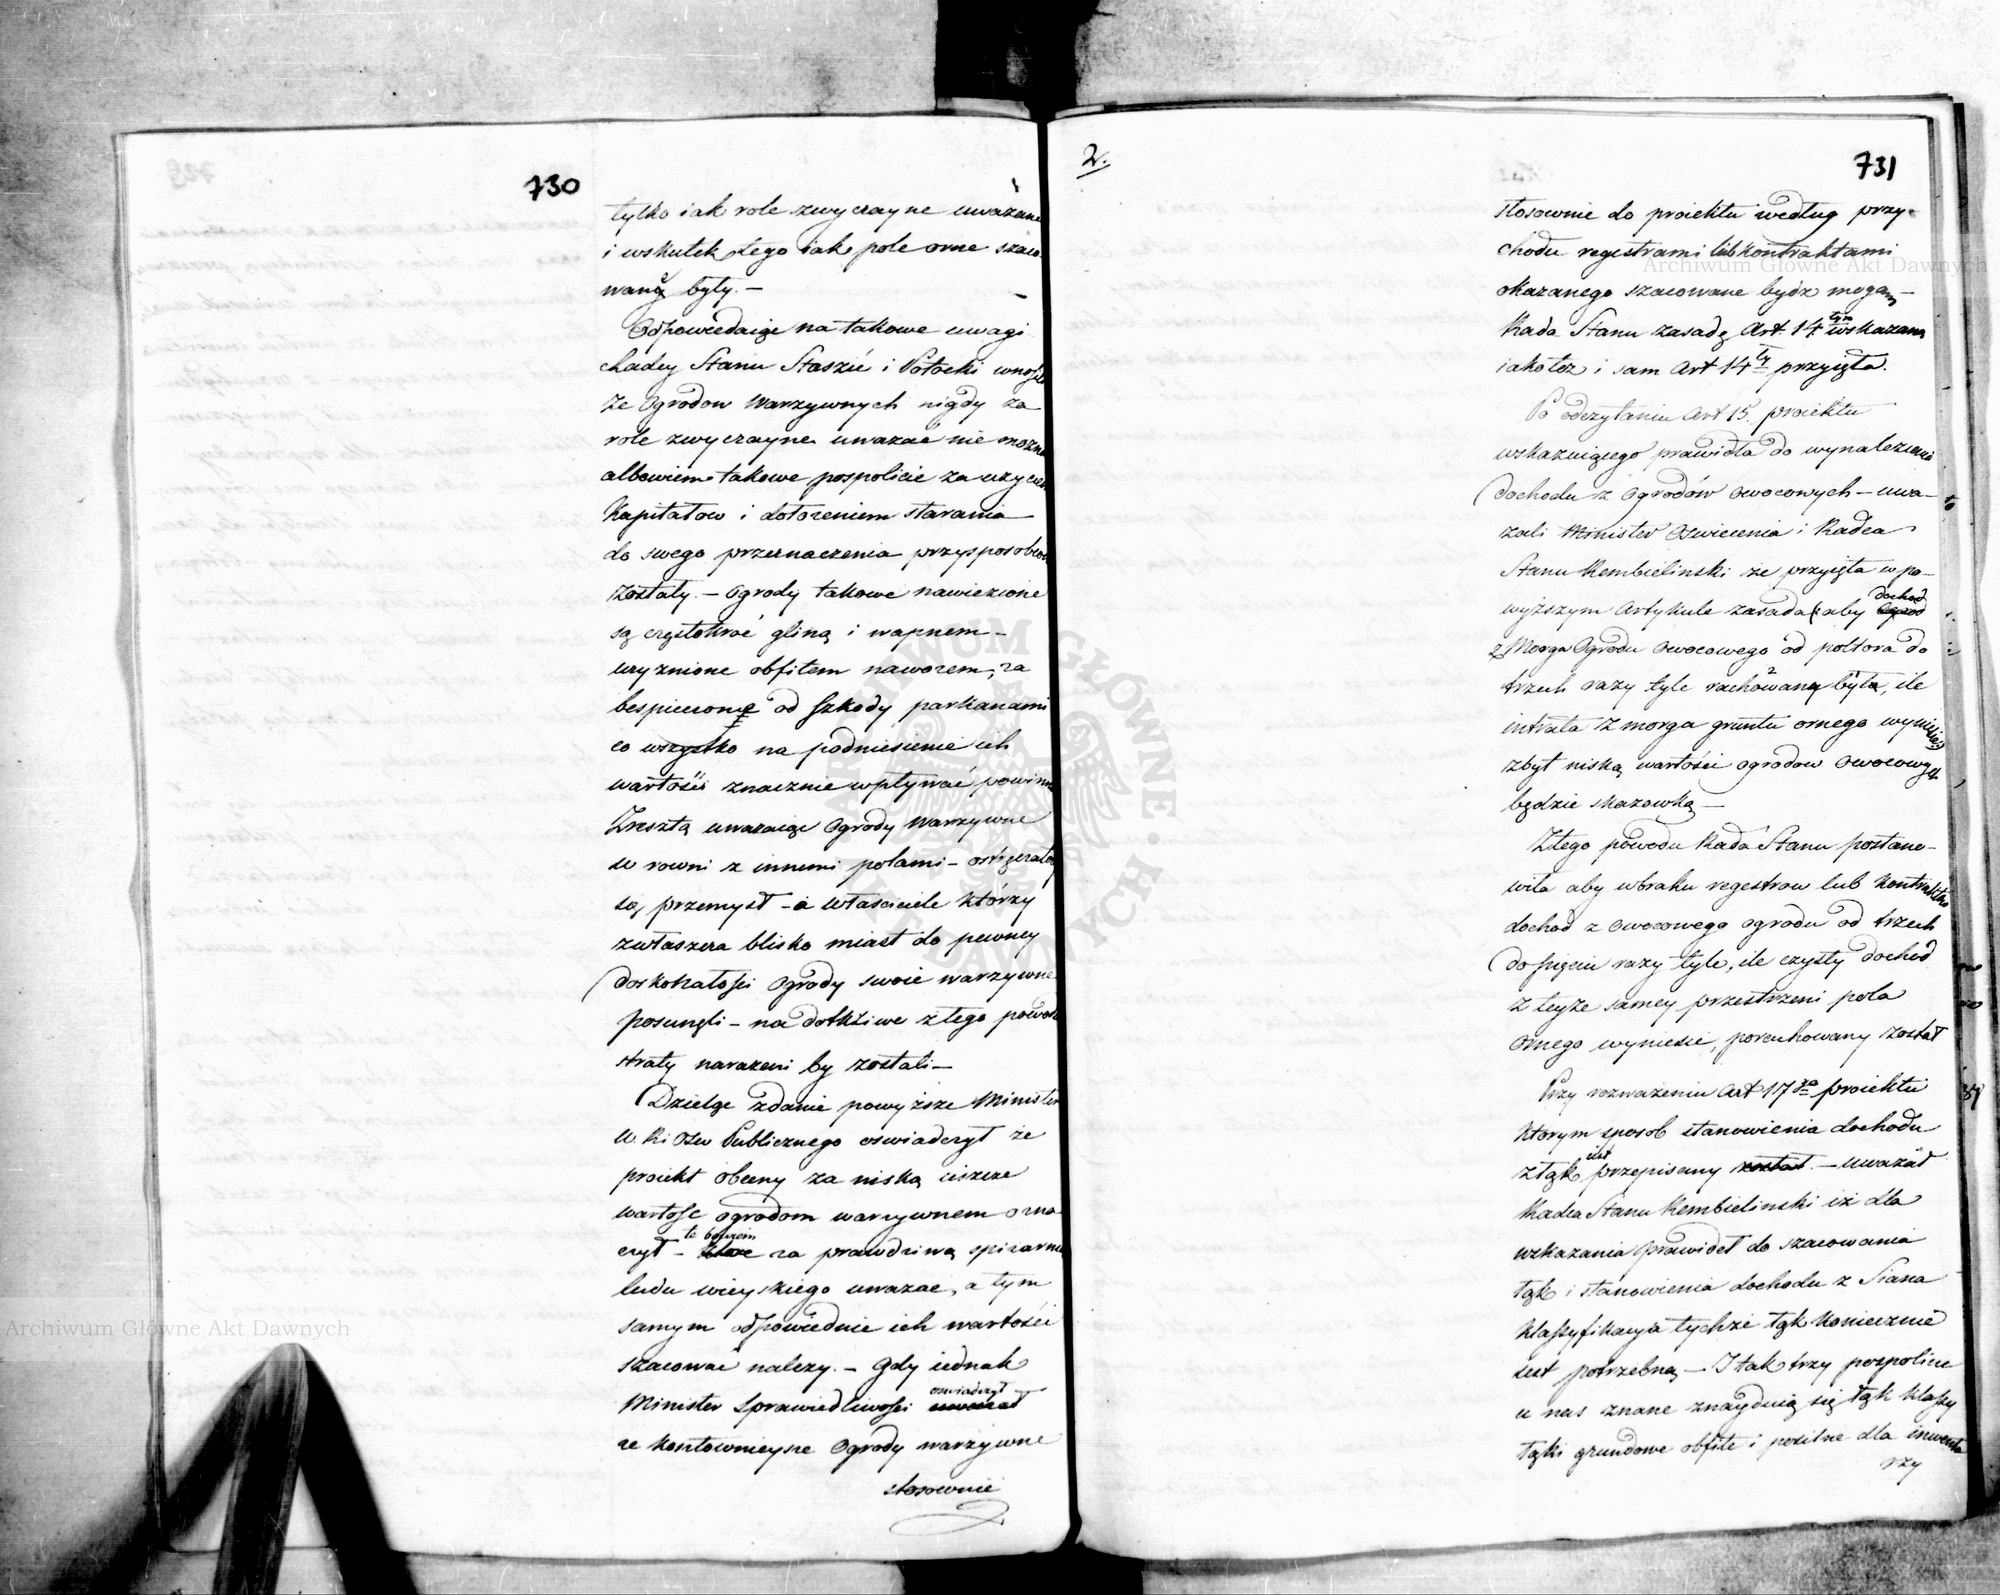 730
tylko iak role zwyczayne uważane
i wskutek tego iak pole orne szaco
wane były. —
Odpowiedaiąc na takowe uwagi
Radcy Stanu Staszic i Potocki wnosili
że Ogrodow Warzywnych nigdy za
role zwyczayne uwazać nie mozna
albowiem takowe pospolicie za uzyciem
Kapitałow i dołożeniem starania
do swego przeznaczenia przysposobione
zostały. — Ogrody takowe nawiezione
są częstokroć gliną i wapnem —
uzyznione obfitem nawozem, za
bespieczone od szkody parkanami
co wszystko na podniesienie ich
wartości znacznie wpływać powinno
Zresztą uwazaiąc Ogrody Warzywne
w rowni z innemi polami —
by przemysł — a właściciele którzy
zwłaszcza blisko miast do pewney
doskonałości Ogrody swoie warzywne
posunęli — na dotkliwe z tego powodu
straty narazeni by zostali —
Dzieląc zdanie powyższe Minister
W. R. i Ośw Publicznego oswiadczył że
proiekt obecny za niską ieszcze
wartość ogrodom warzywnem ozna
czył — te bowiem za prawdziwą spizarnią
ludu wieyskiego uwazac, a tym
samym odpowiednie ich wartości
szacować nalezy. — Gdy iednak
Minister Sprawiedliwości oswiadczył
ze kosztownieysze Ogrody warzywne
stosownie
2.
731
Stosownie do proiektu według przy-
chodu regestrami lub kontraktami
okazanego szacowane bydź mogą —
Rada Stanu zasadę Art 14tym wskazaną
iakoteż i sam Art 14ty przyięła.
Po odczytaniu Art 15. proiektu
wskazuiącego prawidła do wynalezienia
dochodu z Ogrodów owocowych — uwa-
zali Minister Oswiecenia i Radca
Stanu Rembielinski że przyięta w po-
wyższym Artykule zasada aby dochod
z Morga Ogrodu Owocowego od poltora do
trzech razy tyle rachowany był, ile
intrata z morga gruntu ornego wyniesie
zbyt niską wartości ogrodow Owocowych
będzie skazowką —
Z tego powodu Rada Stanu postano-
wiła aby w braku regestrow lub kontraktow
dochod z owocowego ogrodu od trzech
do pięciu razy tyle, ile czysty dochod
z teyże samey przestrzeni pola
Ornego wyniesie, porachowany został
Przy rozważeniu Art 17go proiektu
ktorym sposob stanowienia dochodu
z łąk iest przepisany — uważał
Radca Stanu Rembielinski iż dla
wskazania prawideł do szacowania
łąk i stanowienia dochodu z Siana
klassyfikacya tychże łąk koniecznie
iest potrzebną — I tak trzy pospolicie
u nas znane znayduią się łąk klassy
łąki grundowe obfite i posilne dla inwenta
rzy
Archiwum Główne Akt Dawnych
Archiwum Główne Akt Dawnych
ARCHIWUM GŁÓWNE AKT DAWNYCH